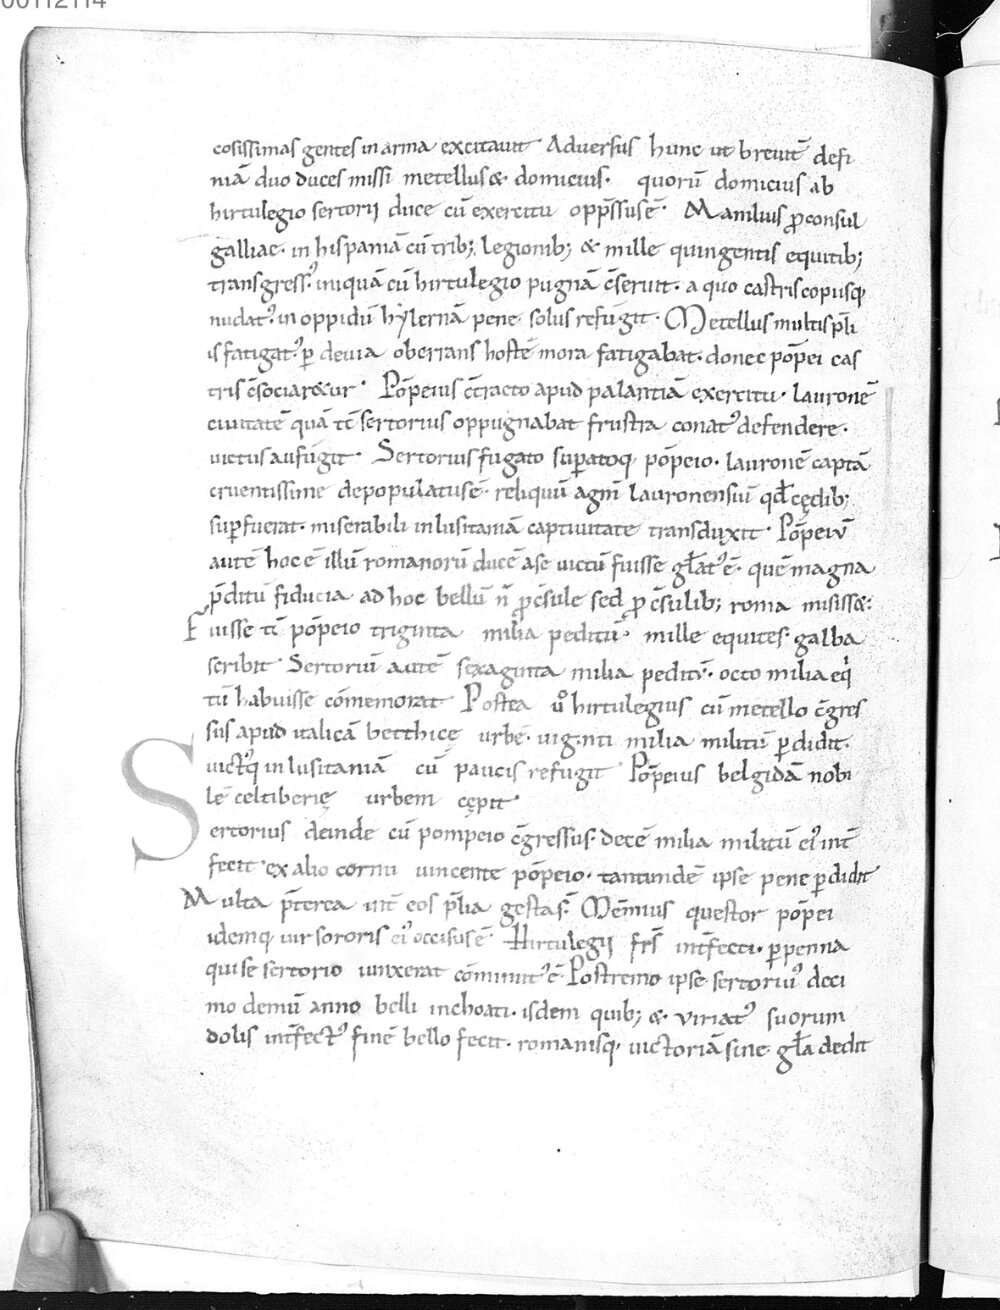 00112114
cosissimas gentes in arma excitauit Aduersus hunc ut breuit̄ defi
niā duo duces missi metellus & domicius. quorū domicius ab
hirtulegio sertorij duce cū exercitu opp̄ssus ē. Manilius ꝓconsul
galliae. in hispaniā cū trib; legionib; & mille quingentis equitib;
transgress᾽ iniquā cū hirtulegio pugnā c̄seruit. a quo castris copiisq;
nudat᾽ in oppidū hylernā pene solus refugit. Metellus multis p̄li
is fatigat᾽ ꝑ deuia oberrans hostē mora fatigabat. donec pōpei cas
tris c̄sociar&ur. Pōpeius c̄tracto apud palantiā exercitu. lauronē
ciuitatē quā tc̄ sertorius oppugnabat frustra conat᾽ defendere.
uictus aufugit. Sertorius fugato suꝑatoq; pōpeio. lauronē captā
cruentissime depopulatus ē. reliquū agm̄ lauronensiū qđ cędib;
suꝑfuerat. miserabili in lusitaniā captiuitate transduxit. Pōpeiū
autē hoc ē illū romanorū ducē a se uictū fuisse gl̄at᾽ ē. quē magna
p̄ditū fiducia ad hoc bellū n̄ ꝓ c̄sule sed ꝓ c̄sulib; roma misiss&.
Fuisse tc̄ pōpeio triginta milia peditū. mille equites. galba
scribit. Sertoriū autē sexaginta milia peditū. octo milia eq̇
tū habuisse cōmemorat Postea u᷎ hirtulegius cū metello c̄gres
sus apud italicā betthicę urbē. uiginti milia militū ꝑdidit.
uict᾽q; in lusitaniā cū paucis refugit Pōpeius belgidā nobi
lē celtiberię urbem cępit.
Sertorius deinde cū pompeio c̄gressus. decē milia militū ei᾽ int̄
fecit. ex alio cornu uincente pōpeio. tantundē ipse pene ꝑdidit
Multa p̄terea int̄ eos p̄lia gesta s̄. Mēmius questor pōpei
idemq; uir sororis ei᾽ occisus ē Hirtulegij frs̄ int̄fecti. ꝑpenna
qui se sertorio iunxerat cōminut᾽ ē. Postremo ipse sertoriu᾽ deci
mo demū anno belli inchoati. isdem quib; & uiriat᾽ suorum
dolis int̄fect᾽ finē bello fecit. romanisq; uictoriā sine gl̄a dedit